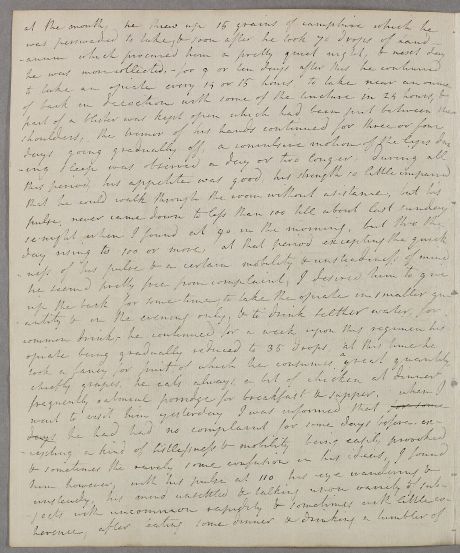 at the mouth, he threw up 15 grains of camphire which he
was persuaded to take, & soon after he took 70 drops of laud
-anum which procured him a pretty quiet night, & next day
he was more collected. - for 9 or ten days after this he continued
to take an opiate every 14 or 15 hours to take near an ounce
of bark in decoction with some of the tincture in 24 hours, &
part of a blister was kept open which had been put between the
shoulders, the tremor of his hands continued for three or four
days going gradually off, a convulsive motion of the legs dur
-ing sleep was observed a day or two longer. During all
this period, his appetite was good, his strength so little impaired
that he could walk through the room without assistance, but his
pulse, never came down to less than 100 till about last sunday
se'night when I found it 90 in the morning, but thro the
day rising to 100 or more, at that period excepting the quick
ness of his pulse & a certain mobility & unsteadiness of mind
he seemed pretty free from complaint, I desired him to give
up the bark for some time, to take the opiate in smaller qu
-antity & in the evening only, & to drink seltzer water, for
common drink, he continued for a week upon this regimen his
opiate being gradually reduced to 35 drops. at this time he
took a fancy for fruit of which he consumes a great quantity
chiefly grapes. he eats always a bit of chicken at dinner &
frequently oatmeal porridge for breakfast & supper. when I
went to visit him yesterday I was informed that for some
days he had had no complaint for some days before ex-
-cepting a kind of listlessness & mobility being easily provoked
& sometimes tho rarely some confusion in his ideas, I found
him however, with his pulse at 110, his eye wandering &
unsteady, his mind unsettled & talking upon variety of sub-
-jects with uncommon rapidity & sometimes with little co-
herence, after eating some dinner & drinking a tumbler of